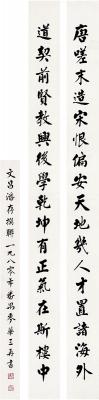 唐嗟末造宋恨偏安天地幾人才置諸海外
道契前賢教興後學乾坤有正氣在斯樓中
文昌潘存撰聯一九八〇年番禺麥華三再書